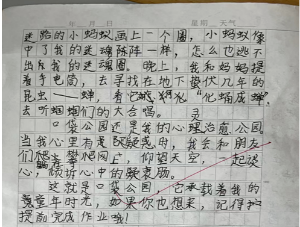 年 月 日 星期 天气
迷路的小蚂蚁画上一个圈，小蚂蚁像
中了我的迷魂阵阵一样，怎么也逃不
出我的迷魂圈。晚上，我和妈妈提
着手电筒，去寻找在地下蛰伏几年的
昆虫——蝉，看它 "化蛹成蝉"
去听蝈蝈们的大合唱。
口袋公园还是我的心理治愈公园
当我心里有是 疑惑时，我会和朋友
们爬 网上，仰望天空，一起谈
心，倾诉心中的 衷肠。
这就是口袋公园，它承载着我的
童年时光，如果你也想来，记得
提前完成作业哦！